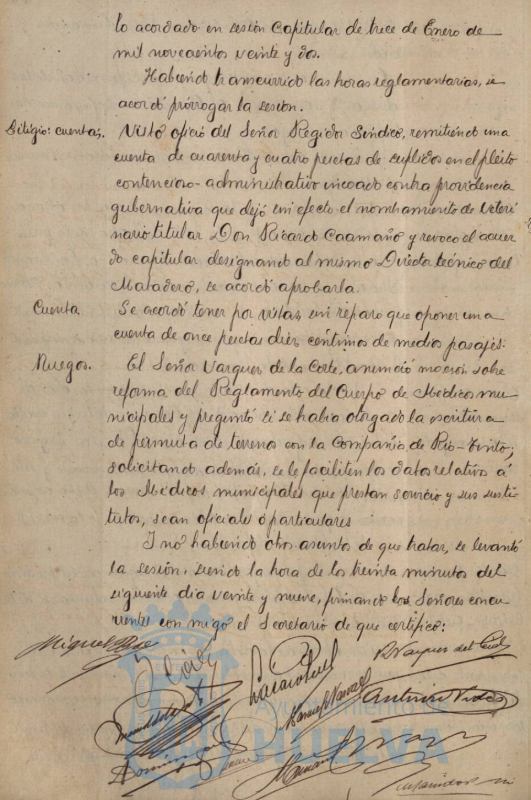 lo acordado en sesión Capitular de trece de Enero de
mil novecientos veinte y dos.
Habiendo transcurrido las horas reglamentarias, se
acordó prorrogar la sesión.
Litigio: cuentas. Visto oficio del Señor Regidor Síndico, remitiendo una
cuenta de cuarenta y cuatro pesetas de suplidos en el pleito
contencioso-administrativo incoado contra providencia
gubernativa que dejó sin efecto el nombramiento de Veteri
nario titular Don Ricardo Caamaño y revocó el acuer
do capitular designando al mismo Director técnico del
Matadero, se acordó aprobarla.
Cuenta Se acordó tener por vistas, sin reparo que oponer una
cuenta de once pesetas diez céntimos de medios pasajes.
Ruegos. El Señor Vazquez de la Corte, anunció moción sobre
reforma del Reglamento del Cuerpo de Médicos mu-
nicipales y preguntó si se habia otorgado la escritura
de permuta de terrenos con la Compañia de Rio-Tinto;
solicitando además, se le faciliten los datos relativos á
los Médicos municipales que prestan servicio y sus susti
tutos, sean oficiales ó particulares
Y no habiendo otro asunto de que tratar, se levantó
la sesión, siendo la hora de los treinta minutos del
siguiente dia veinte y nueve, firmando los Señores concu
rrentes con migo el Secretario de que certifico:
Antonio Vides
Ayuntamiento de
HUELVA
Dominguez